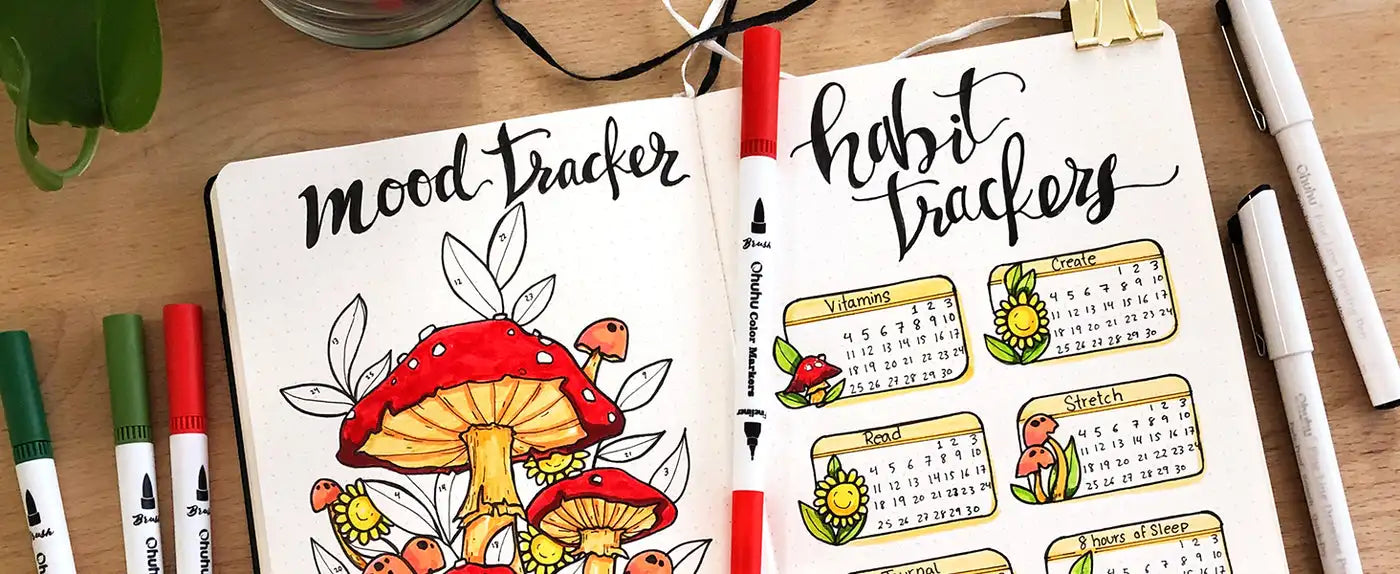 mood tracker
habit
trackers
Brush
Ohuhu Color Markers
Fineliner
Brush
Brush
Ohuhu
Ohuhu
Ohuhu Fine Line Drawing Pen
Ohuhu
22
12
23
9
25
24
9
3
4
14
18
20
Vitamins
1 2 3
4 5 6 7 8 9 10
11 12 13 14 15 16 17
18 19 20 21 22 23 24
25 26 27 28 29 30
Create
1 2 3
4 5 6 7 8 9 10
11 12 13 14 15 16 17
18 19 20 21 22 23 24
25 26 27 28 29 30
Read
1 2 3
4 5 6 7 8 9 10
11 12 13 14 15 16 17
18 19 20 21 22 23 24
25 26 27 28 29 30
Stretch
1 2 3
4 5 6 7 8 9 10
11 12 13 14 15 16 17
18 19 20 21 22 23 24
25 26 27 28 29 30
Journal
8 hours of Sleep
1 2 3